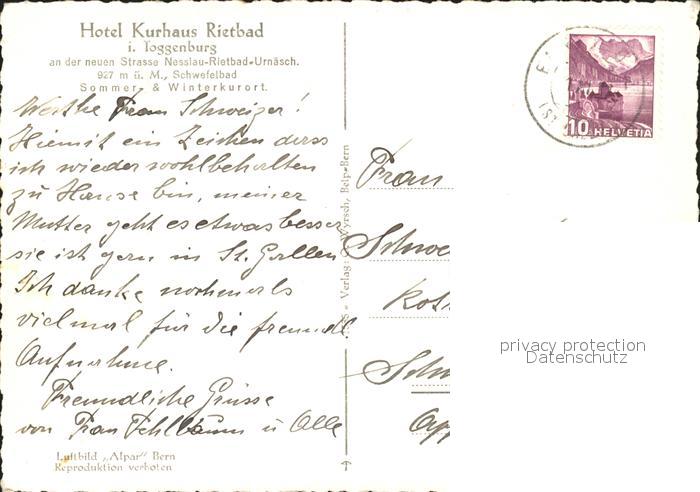 Hotel Kurhaus Rietbad
i. Toggenburg
an der neuen Strasse Nesslau-Rietbad-Urnäsch.
927 m ü. M., Schwefelbad
Sommer- & Winterkurort.
Werthe Frau Schweizer!
Hiemit ein Zeichen dass
ich wieder wohlbehalten
zu Hause bin, meiner
Mutter geht es etwas besser
sie ist gern in St. Gallen
Ich danke nochmals
vielmal für die freundl.
Aufnahme.
Freundliche Grüsse
von Frau Fehlbaum u Alle
Luftbild „Alpar" Bern
Reproduktion verboten
Verlag: O. Wyrsch, Belp-Bern
10 HELVETIA
Frau
Schwe
Kos
Sch
App
privacy protection
Datenschutz